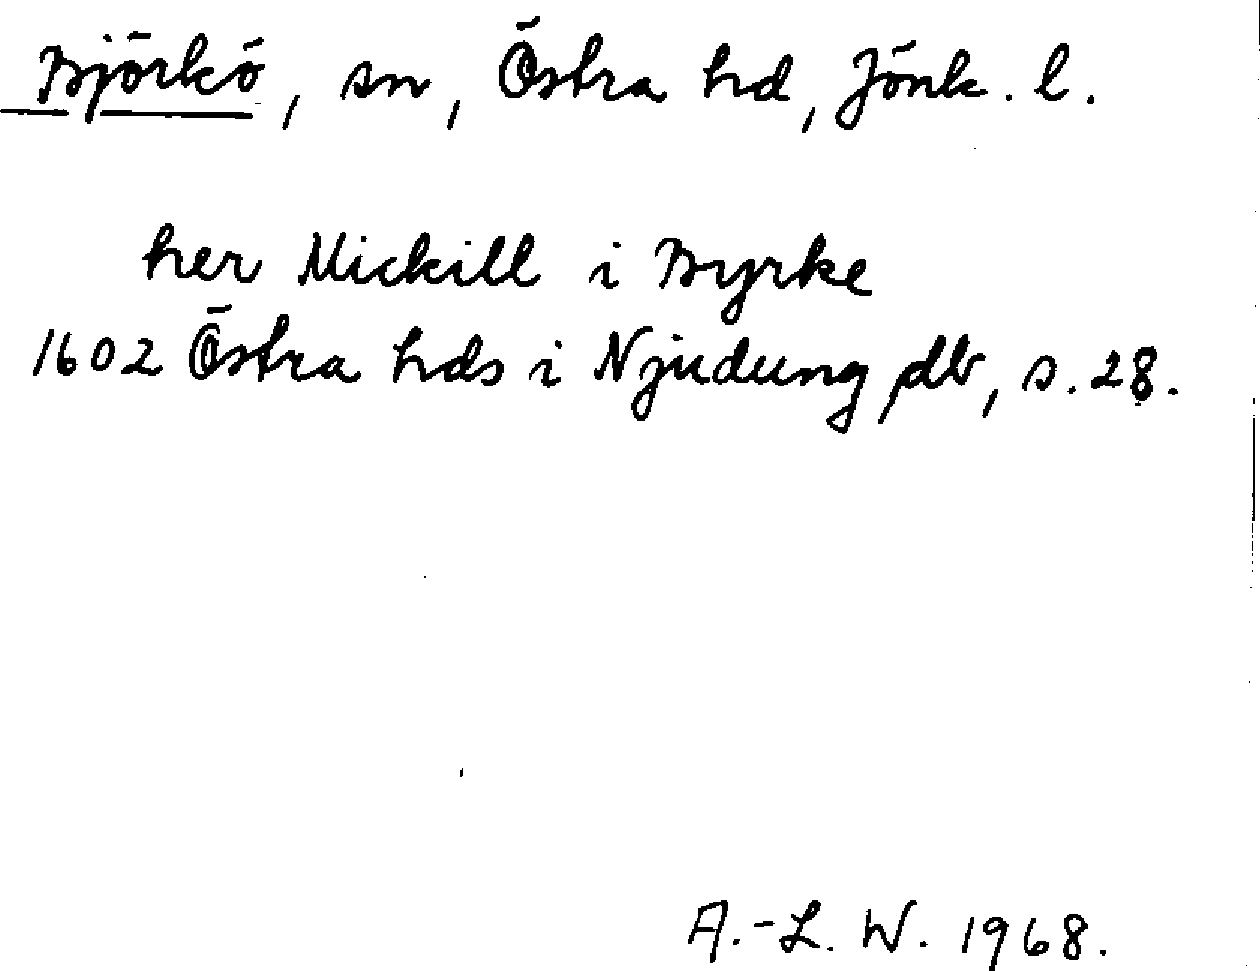 Björkö, sn, Östra hd, Jönk. l.
her Mickill i Byrke
1602 Östra hds i Njudung db, s. 28.
A.-L. W. 1968.